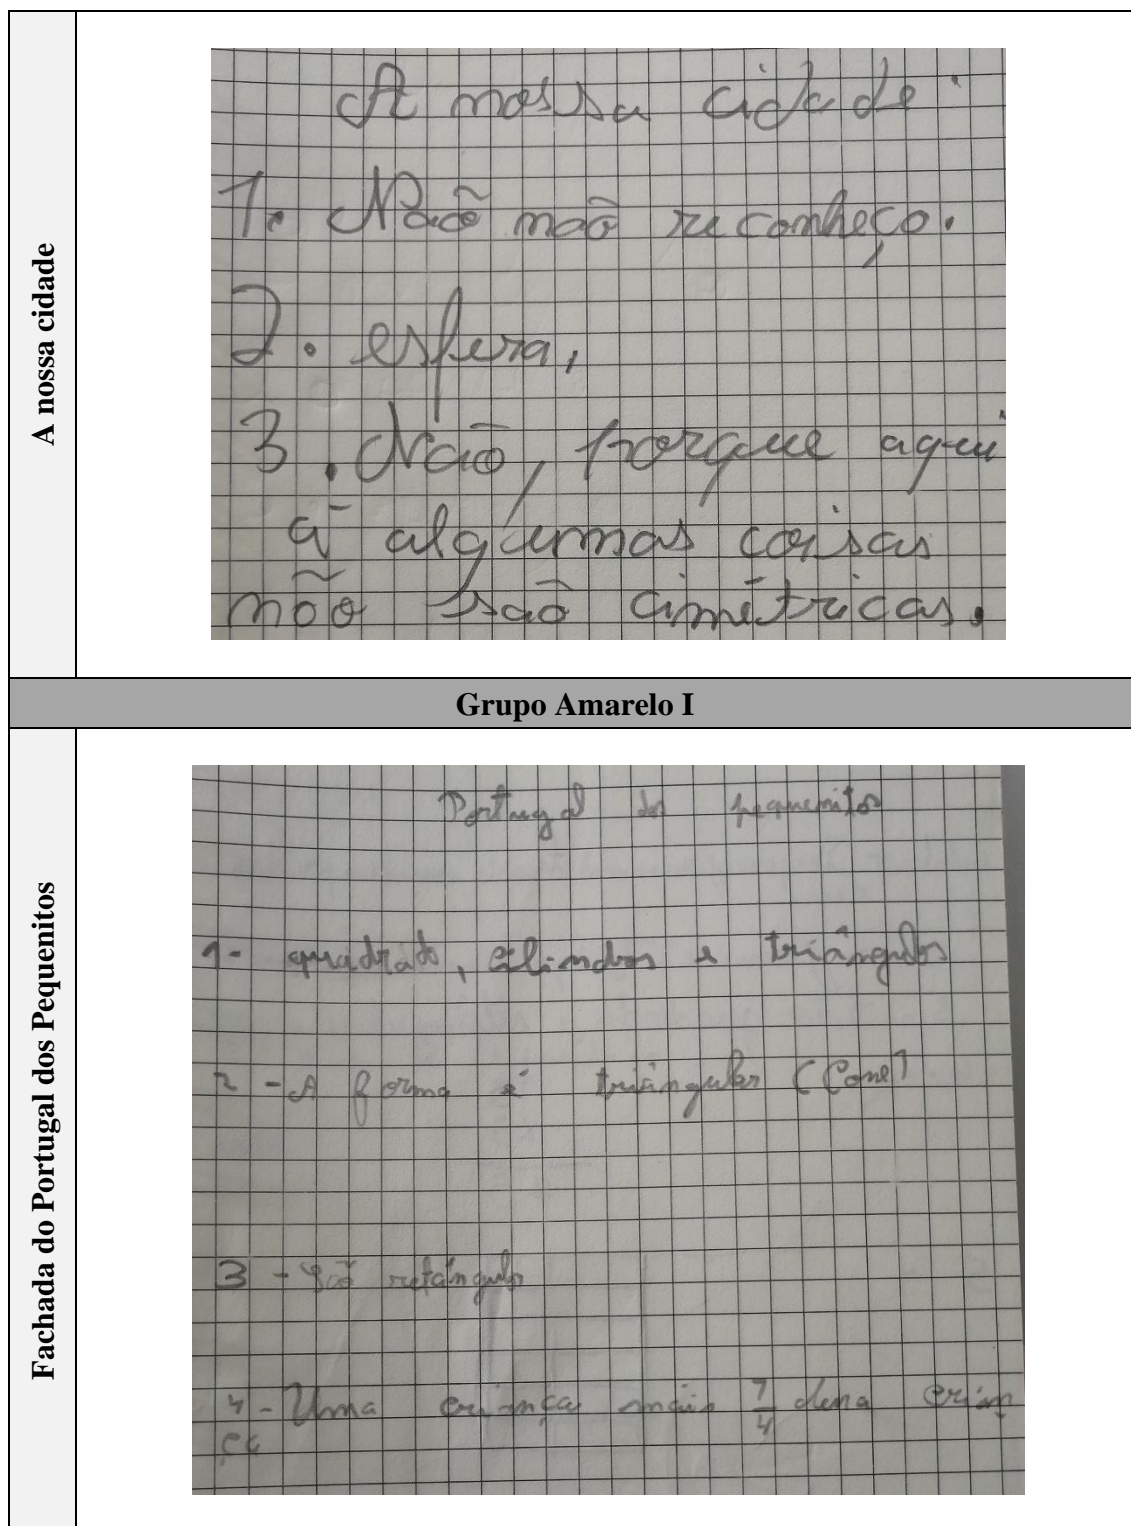 A nossa cidade
A nossa cidade
1. Não não reconheço.
2. esfera,
3. Não, porque aqui
á algumas coisas
não são cimétricas.
Grupo Amarelo I
Fachada do Portugal dos Pequenitos
Portugal dos pequenitos
1- quadrado, cilindros e triângulos
2 - A forma é triângular (Cone)
3 - São retângulos
4 - Uma criança mais dena crian
ça